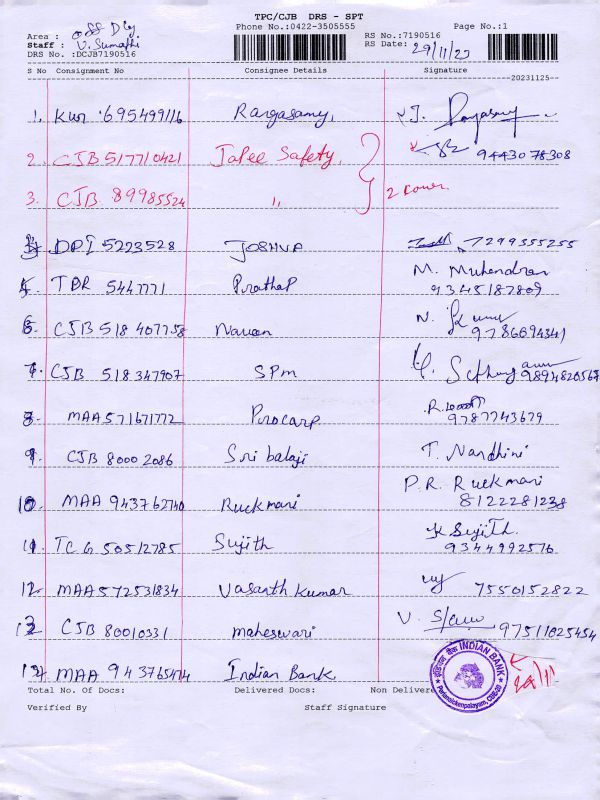 TPC/CJB DRS - SPT
Phone No.:0422-3505555
Page No.:1
Area : off Dly
Staff : V. Sumathi
DRS No. :DCJB7190516
RS No.:7190516
RS Date: 29/11/23
S No Consignment No Consignee Details Signature
20231125
1. KUM 695499116 Rangasamy,
2. CJB 517710421 Jalee Safety, 9443078308
3. CJB 89985524 " 2 cover
4. DPI 5223528 JOSHVA 7299355255
5. TDR 5447771 Prathap M. Muhendran 9345187809
6. CJB 518 407758 Naveen N. 9786694341
7. CJB 518 347907 SPM 9894820567
8. MAA 571671772 Procarp 9787743679
9. CJB 8000 2086 Sri balaji T. Nandhini
10. MAA 943762740 Ruckmari P.R. Ruckmari 8122281238
11. TCG 50512785 Sujith K Sujith. 9344992576
12. MAA 572531834 Vasanth Kumar 7550152822
13 CJB 80010331 maheswari V. 97511025454
14. MAA 943765474 Indian Bank,
INDIAN BANK
29/11
Total No. Of Docs: Delivered Docs: Non Delivere
Verified By Staff Signature